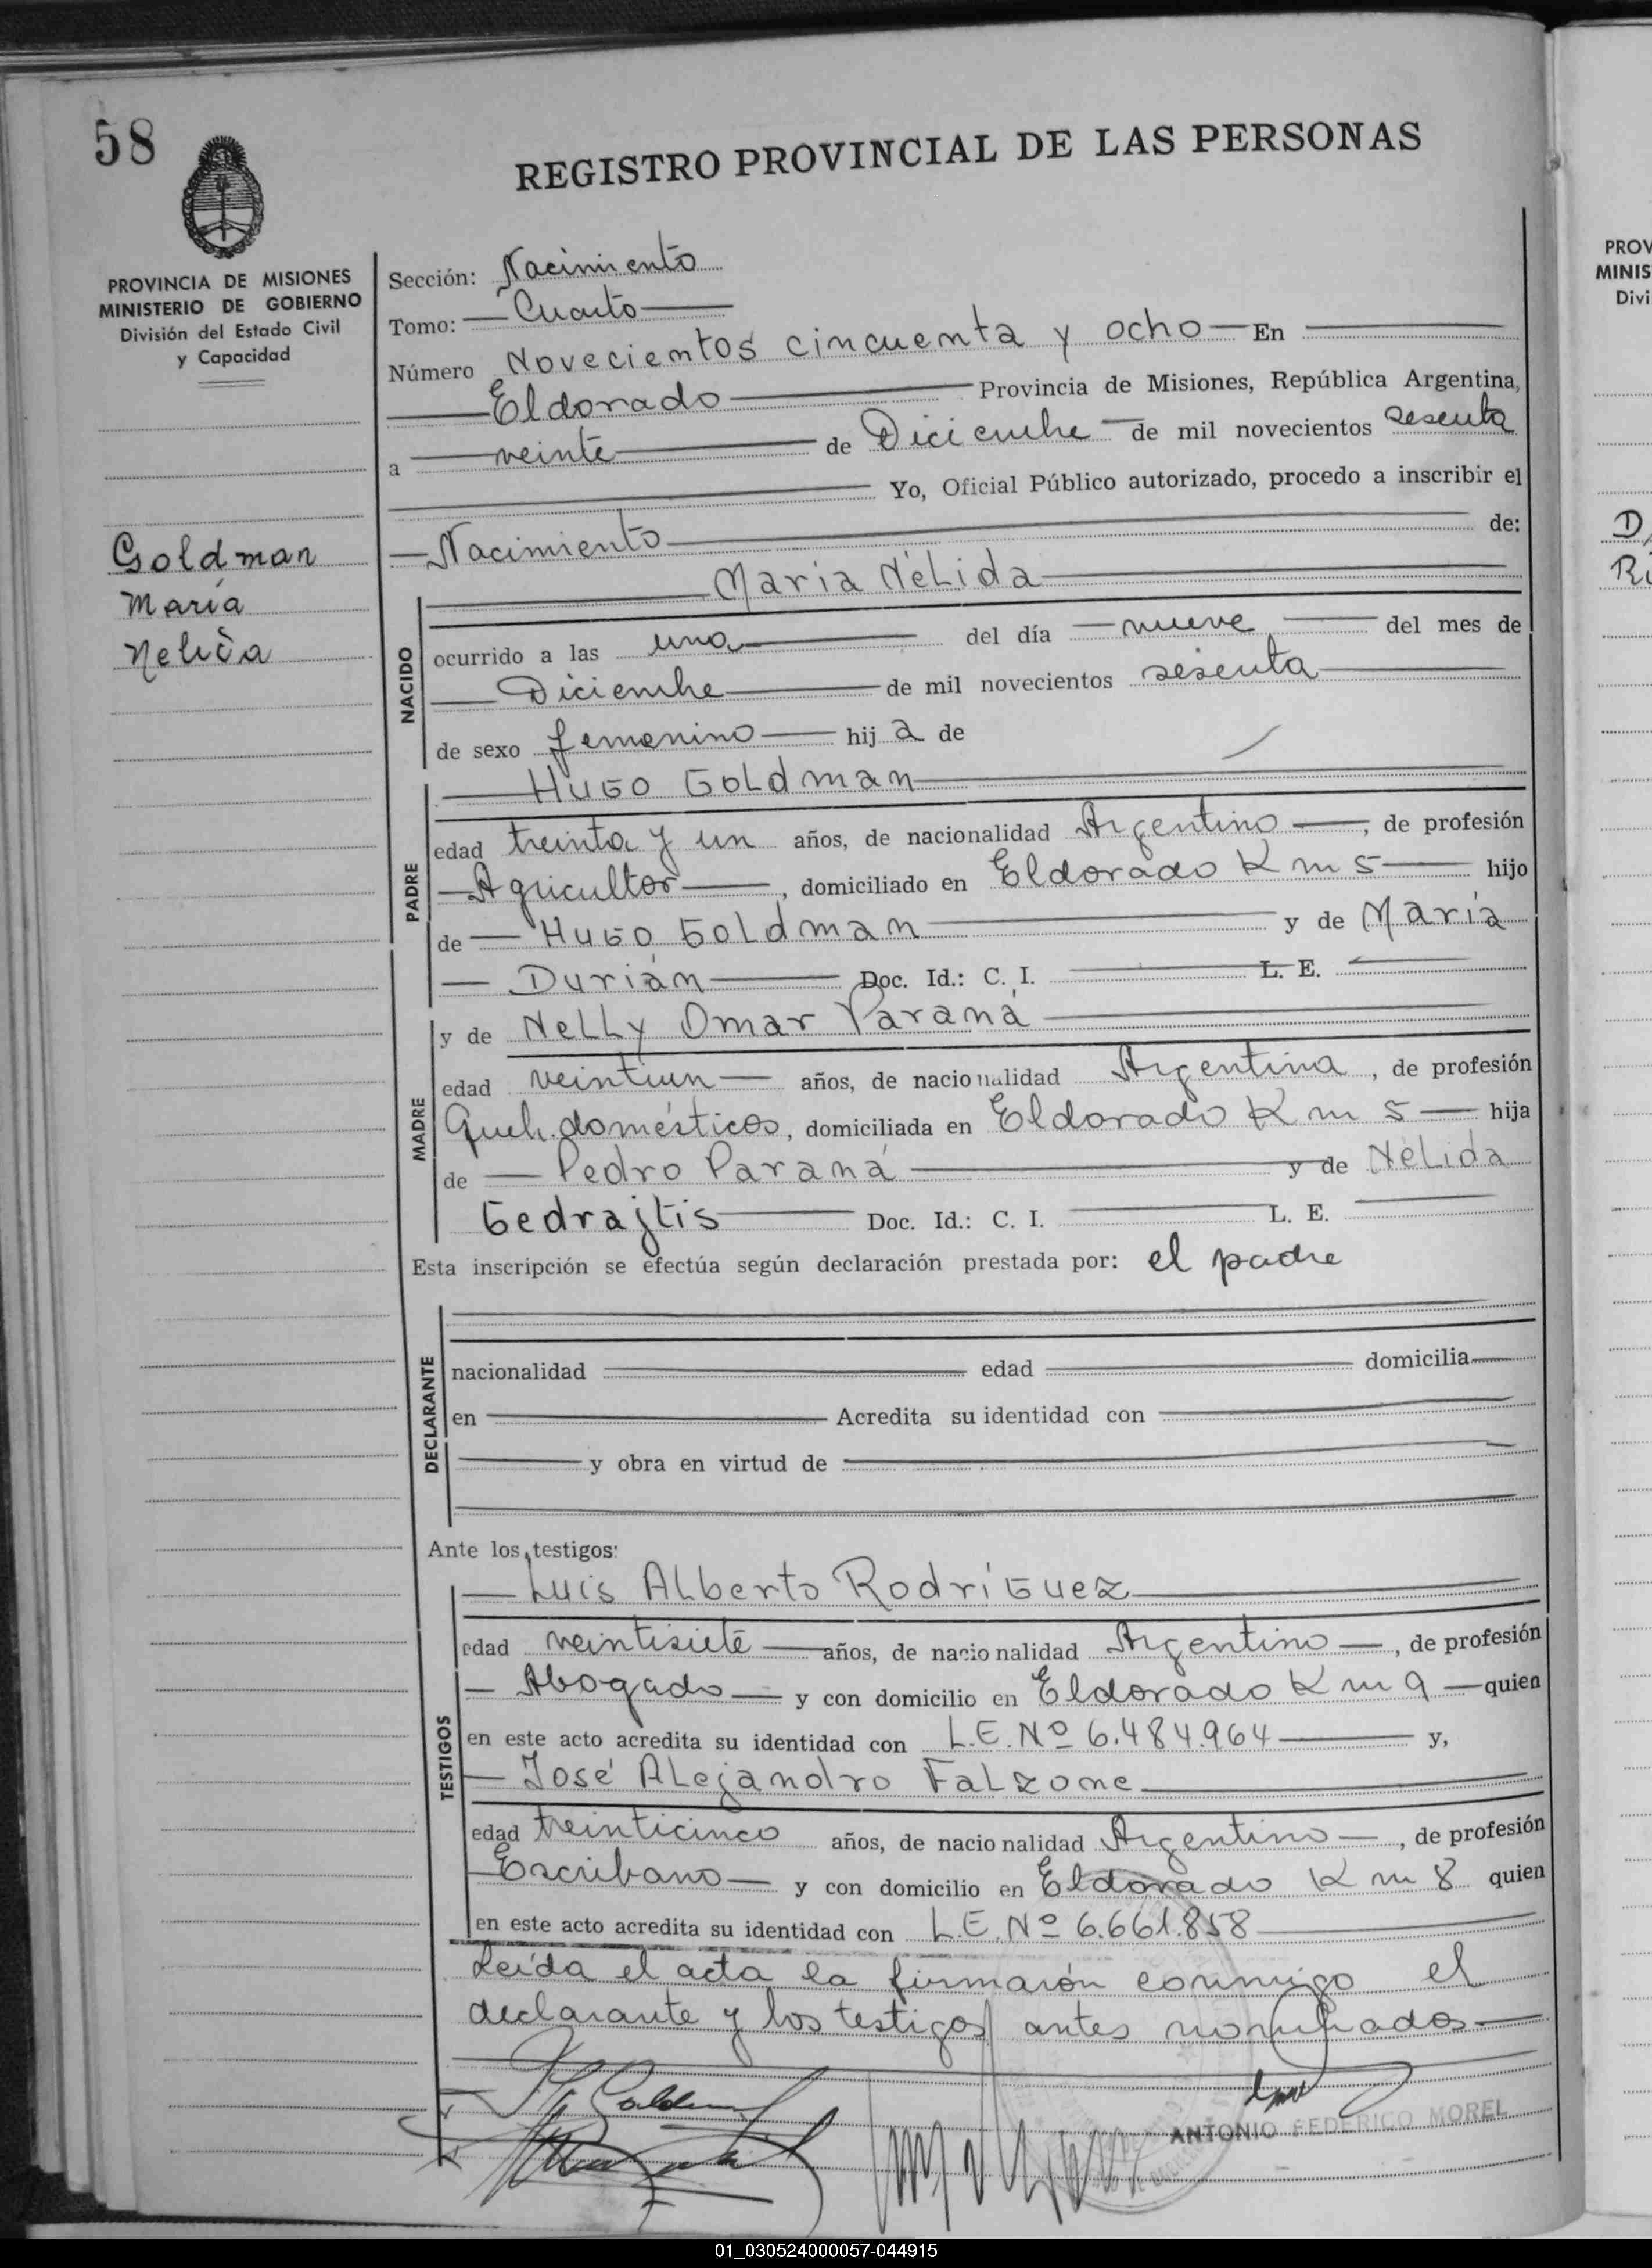 58
REGISTRO PROVINCIAL DE LAS PERSONAS
PROVINCIA DE MISIONES
MINISTERIO DE GOBIERNO
División del Estado Civil
y Capacidad
Goldman
María
Nelida
Sección: Nacimiento
Tomo: Cuarto
Número Novecientos cincuenta y ocho En
Eldorado Provincia de Misiones, República Argentina,
a veinte de Diciembre de mil novecientos sesenta
Yo, Oficial Público autorizado, procedo a inscribir el
Nacimiento de:
María Nélida
NACIDO
ocurrido a las una del día nueve del mes de
Diciembre de mil novecientos sesenta
de sexo femenino hij a de
Hugo Goldman
PADRE
edad treinta y un años, de nacionalidad Argentino, de profesión
Agricultor, domiciliado en Eldorado Km 5 hijo
de Hugo Goldman y de María
Durián Doc. Id.: C. I. L. E.
y de Nelly Omar Paraná
MADRE
edad veintiun años, de nacionalidad Argentina, de profesión
Queh. domésticos, domiciliada en Eldorado Km 5 hija
de Pedro Paraná y de Nélida
Gedrajtis Doc. Id.: C. I. L. E.
Esta inscripción se efectúa según declaración prestada por: el padre
DECLARANTE
nacionalidad edad domicilia
en Acredita su identidad con
y obra en virtud de
Ante los testigos:
Luis Alberto Rodríguez
TESTIGOS
edad veintisiete años, de nacionalidad Argentino, de profesión
Abogado y con domicilio en Eldorado Km 9 quien
en este acto acredita su identidad con L.E. Nº 6.484.964 y,
José Alejandro Falzone
edad treinticinco años, de nacionalidad Argentino, de profesión
Escribano y con domicilio en Eldorado Km 8 quien
en este acto acredita su identidad con L.E. Nº 6.661.858
Leída el acta la firmarón conmigo el
declarante y los testigos antes nombrados
ANTONIO FEDERICO MOREL
PROV
MINIS
Divi
01_030524000057-044915